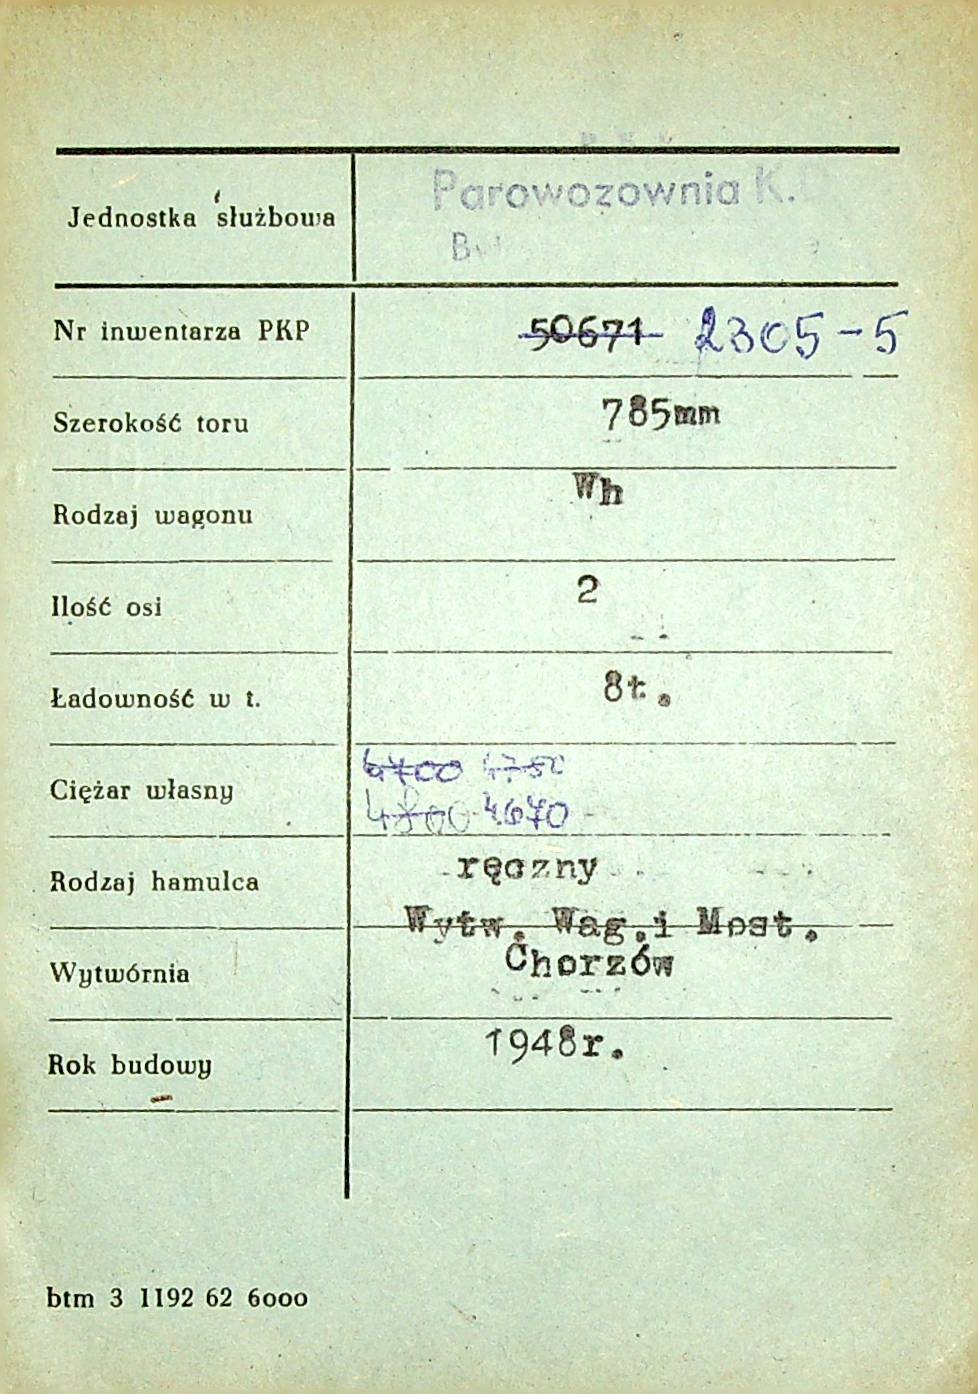 Jednostka służbowa
Parowozownia K.
Nr inwentarza PKP 50671 2305-5
Szerokość toru 785mm
Rodzaj wagonu Wh
Ilość osi 2
Ładowność w t. 8t.
4750
Ciężar własny
4800 4670
Rodzaj hamulca ręczny
Wytw. Wag.i Most.
Wytwórnia Chorzów
Rok budowy 1948r.
btm 3 1192 62 6000